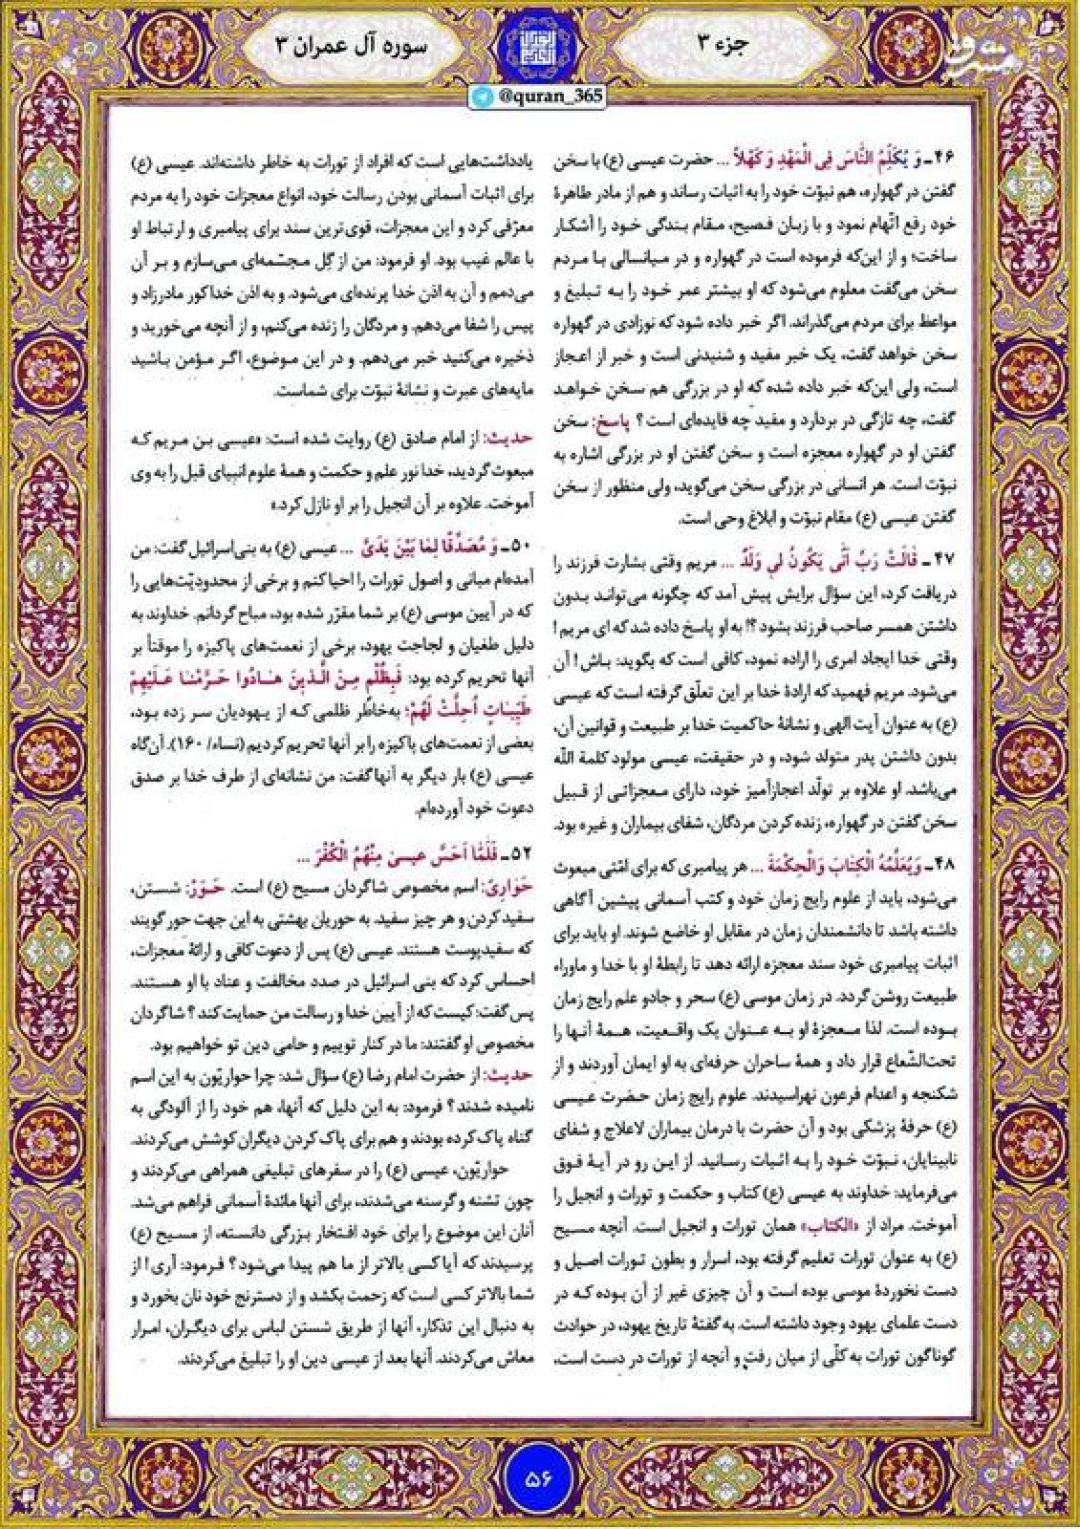 جزء ۳
سوره آل عمران ۳
@quran_365
مشرق
۴۶ـ وَ یُکَلِّمُ النّاسَ فِی الْمَهْدِ وَ کَهْلاً ... حضرت عیسی (ع) با سخن
گفتن در گهواره، هم نبوّت خود را به اثبات رساند و هم از مادر طاهرهٔ
خود رفع اتّهام نمود و با زبان فصیح، مقام بندگی خود را آشکار
ساخت؛ و از این‌که فرموده است در گهواره و در میانسالی با مردم
سخن می‌گفت معلوم می‌شود که او بیشتر عمر خود را به تبلیغ و
مواعظ برای مردم می‌گذراند. اگر خبر داده شود که نوزادی در گهواره
سخن خواهد گفت، یک خبر مفید و شنیدنی است و خبر از اعجاز
است، ولی این‌که خبر داده شده که او در بزرگی هم سخن خواهد
گفت، چه تازگی در بردارد و مفید چه فایده‌ای است؟ پاسخ: سخن
گفتن او در گهواره معجزه است و سخن گفتن او در بزرگی اشاره به
نبوّت است. هر انسانی در بزرگی سخن می‌گوید، ولی منظور از سخن
گفتن عیسی (ع) مقام نبوّت و ابلاغ وحی است.
۴۷ـ قالَتْ رَبِّ اَنّی یَکُونُ لی وَلَدٌ ... مریم وقتی بشارت فرزند را
دریافت کرد، این سؤال برایش پیش آمد که چگونه می‌تواند بدون
داشتن همسر صاحب فرزند بشود؟! به او پاسخ داده شد که ای مریم!
وقتی خدا ایجاد امری را اراده نمود، کافی است که بگوید: باش! آن
می‌شود. مریم فهمید که ارادهٔ خدا بر این تعلّق گرفته است که عیسی
(ع) به عنوان آیت الهی و نشانهٔ حاکمیت خدا بر طبیعت و قوانین آن،
بدون داشتن پدر متولد شود، و در حقیقت، عیسی مولود کلمة الله
می‌باشد. او علاوه بر تولّد اعجازآمیز خود، دارای معجزاتی از قبیل
سخن گفتن در گهواره، زنده کردن مردگان، شفای بیماران و غیره بود.
۴۸ـ وَیُعَلِّمُهُ الْکِتابَ وَالْحِکْمَةَ ... هر پیامبری که برای امّتی مبعوث
می‌شود، باید از علوم رایج زمان خود و کتب آسمانی پیشین آگاهی
داشته باشد تا دانشمندان زمان در مقابل او خاضع شوند. او باید برای
اثبات پیامبری خود سند معجزه ارائه دهد تا رابطهٔ او با خدا و ماوراء
طبیعت روشن گردد. در زمان موسی (ع) سحر و جادو علم رایج زمان
بوده است. لذا معجزهٔ او به عنوان یک واقعیت، همهٔ آنها را
تحت‌الشّعاع قرار داد و همهٔ ساحران حرفه‌ای به او ایمان آوردند و از
شکنجه و اعدام فرعون نهراسیدند. علوم رایج زمان حضرت عیسی
(ع) حرفهٔ پزشکی بود و آن حضرت با درمان بیماران لاعلاج و شفای
نابینایان، نبوّت خود را به اثبات رسانید. از این رو در آیهٔ فوق
می‌فرماید: خداوند به عیسی (ع) کتاب و حکمت و تورات و انجیل را
آموخت. مراد از «الکتاب» همان تورات و انجیل است. آنچه مسیح
(ع) به عنوان تورات تعلیم گرفته بود، اسرار و بطون تورات اصیل و
دست نخوردهٔ موسی بوده است و آن چیزی غیر از آن بوده که در
دست علمای یهود وجود داشته است. به گفتهٔ تاریخ یهود، در حوادث
گوناگون تورات به کلّی از میان رفت و آنچه از تورات در دست است،
یادداشت‌هایی است که افراد از تورات به خاطر داشته‌اند. عیسی (ع)
برای اثبات آسمانی بودن رسالت خود، انواع معجزات خود را به مردم
معرّفی کرد و این معجزات، قوی‌ترین سند برای پیامبری و ارتباط او
با عالم غیب بود. او فرمود: من از گِل مجسّمه‌ای می‌سازم و بر آن
می‌دمم و آن به اذن خدا پرنده‌ای می‌شود. و به اذن خدا کور مادرزاد و
پیس را شفا می‌دهم. و مردگان را زنده می‌کنم، و از آنچه می‌خورید و
ذخیره می‌کنید خبر می‌دهم. و در این موضوع، اگر مؤمن باشید
مایه‌های عبرت و نشانهٔ نبوّت برای شماست.
حدیث: از امام صادق (ع) روایت شده است: «عیسی بن مریم که
مبعوث گردید، خدا نور علم و حکمت و همهٔ علوم انبیای قبل را به وی
آموخت. علاوه بر آن انجیل را بر او نازل کرد.»
۵۰ـ وَ مُصَدِّقًا لِما بَیْنَ یَدَیَّ ... عیسی (ع) به بنی‌اسرائیل گفت: من
آمده‌ام مبانی و اصول تورات را احیا کنم و برخی از محدودیّت‌هایی را
که در آیین موسی (ع) بر شما مقرّر شده بود، مباح گردانم. خداوند به
دلیل طغیان و لجاجت یهود، برخی از نعمت‌های پاکیزه را موقتاً بر
آنها تحریم کرده بود: فَبِظُلْمٍ مِنَ الَّذینَ هادُوا حَرَّمْنا عَلَیْهِمْ
طَیِّباتٍ اُحِلَّتْ لَهُمْ؛ به‌خاطر ظلمی که از یهودیان سر زده بود،
بعضی از نعمت‌های پاکیزه را بر آنها تحریم کردیم (نساء/ ۱۶۰). آن‌گاه
عیسی (ع) بار دیگر به آنها گفت: من نشانه‌ای از طرف خدا بر صدق
دعوت خود آورده‌ام.
۵۲ـ فَلَمّا اَحَسَّ عیسی مِنْهُمُ الْکُفْرَ ...
حَوَارِیّ: اسم مخصوص شاگردان مسیح (ع) است. حَوَرْ: شستن،
سفید کردن و هر چیز سفید. به حوریان بهشتی به این جهت حور گویند
که سفیدپوست هستند. عیسی (ع) پس از دعوت کافی و ارائهٔ معجزات،
احساس کرد که بنی اسرائیل در صدد مخالفت و عناد با او هستند.
پس گفت: کیست که از آیین خدا و رسالت من حمایت کند؟ شاگردان
مخصوص او گفتند: ما در کنار توییم و حامی دین تو خواهیم بود.
حدیث: از حضرت امام رضا (ع) سؤال شد: چرا حواریّون به این اسم
نامیده شدند؟ فرمود: به این دلیل که آنها، هم خود را از آلودگی به
گناه پاک کرده بودند و هم برای پاک کردن دیگران کوشش می‌کردند.
حواریّون، عیسی (ع) را در سفرهای تبلیغی همراهی می‌کردند و
چون تشنه و گرسنه می‌شدند، برای آنها مائدهٔ آسمانی فراهم می‌شد.
آنان این موضوع را برای خود افتخار بزرگی دانسته، از مسیح (ع)
پرسیدند که آیا کسی بالاتر از ما هم پیدا می‌شود؟ فرمود: آری! از
شما بالاتر کسی است که زحمت بکشد و از دسترنج خود نان بخورد و
به دنبال این تذکار، آنها از طریق شستن لباس برای دیگران، امرار
معاش می‌کردند. آنها بعد از عیسی دین او را تبلیغ می‌کردند.
۵۶